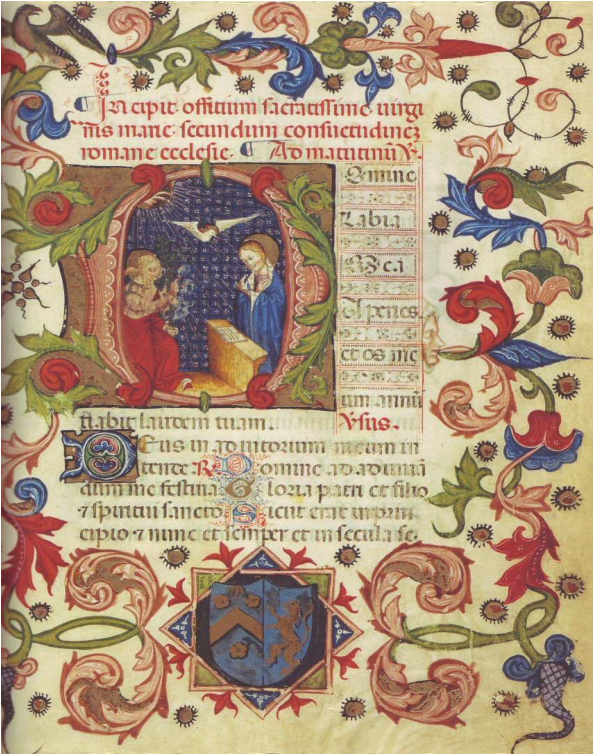 Incipit offitium sacratissime uirgi
nis marie secundum consuetudinez
romane ecclesie. Ad matutinū ℣.
Omine
Labia
mea
Aperies.
et os me
um annū
℣sus.
tiabit laudem tuam
Deus in adiutorium meum in
tende ℟ Domine ad adiuuā
dum me festina Gloria patri et filio
⁊ spiritui sancto Sicut erat in prin
cipio ⁊ nunc et semper et in secula se.